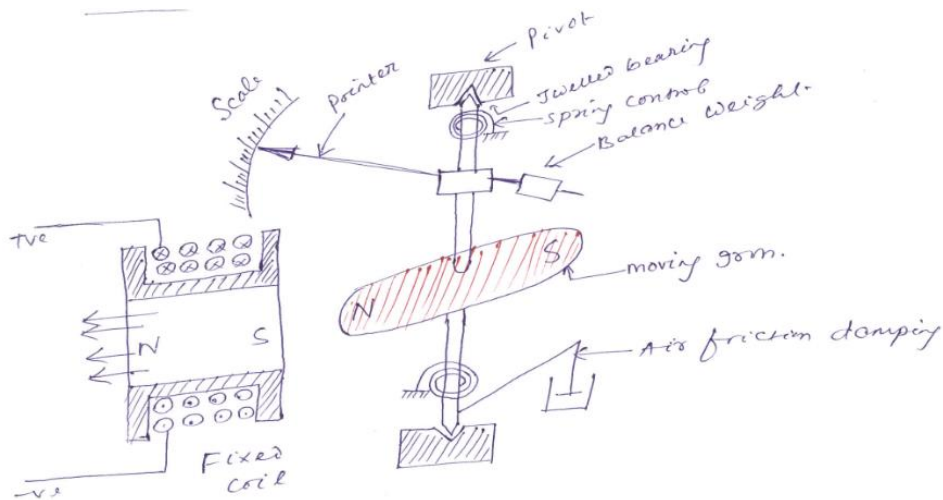 Pivot
Jwelled bearing
spring control
Balance weight.
Scale
pointer
+ve
S
moving iron.
N
N
S
Air friction damping
Fixed
coil
-ve